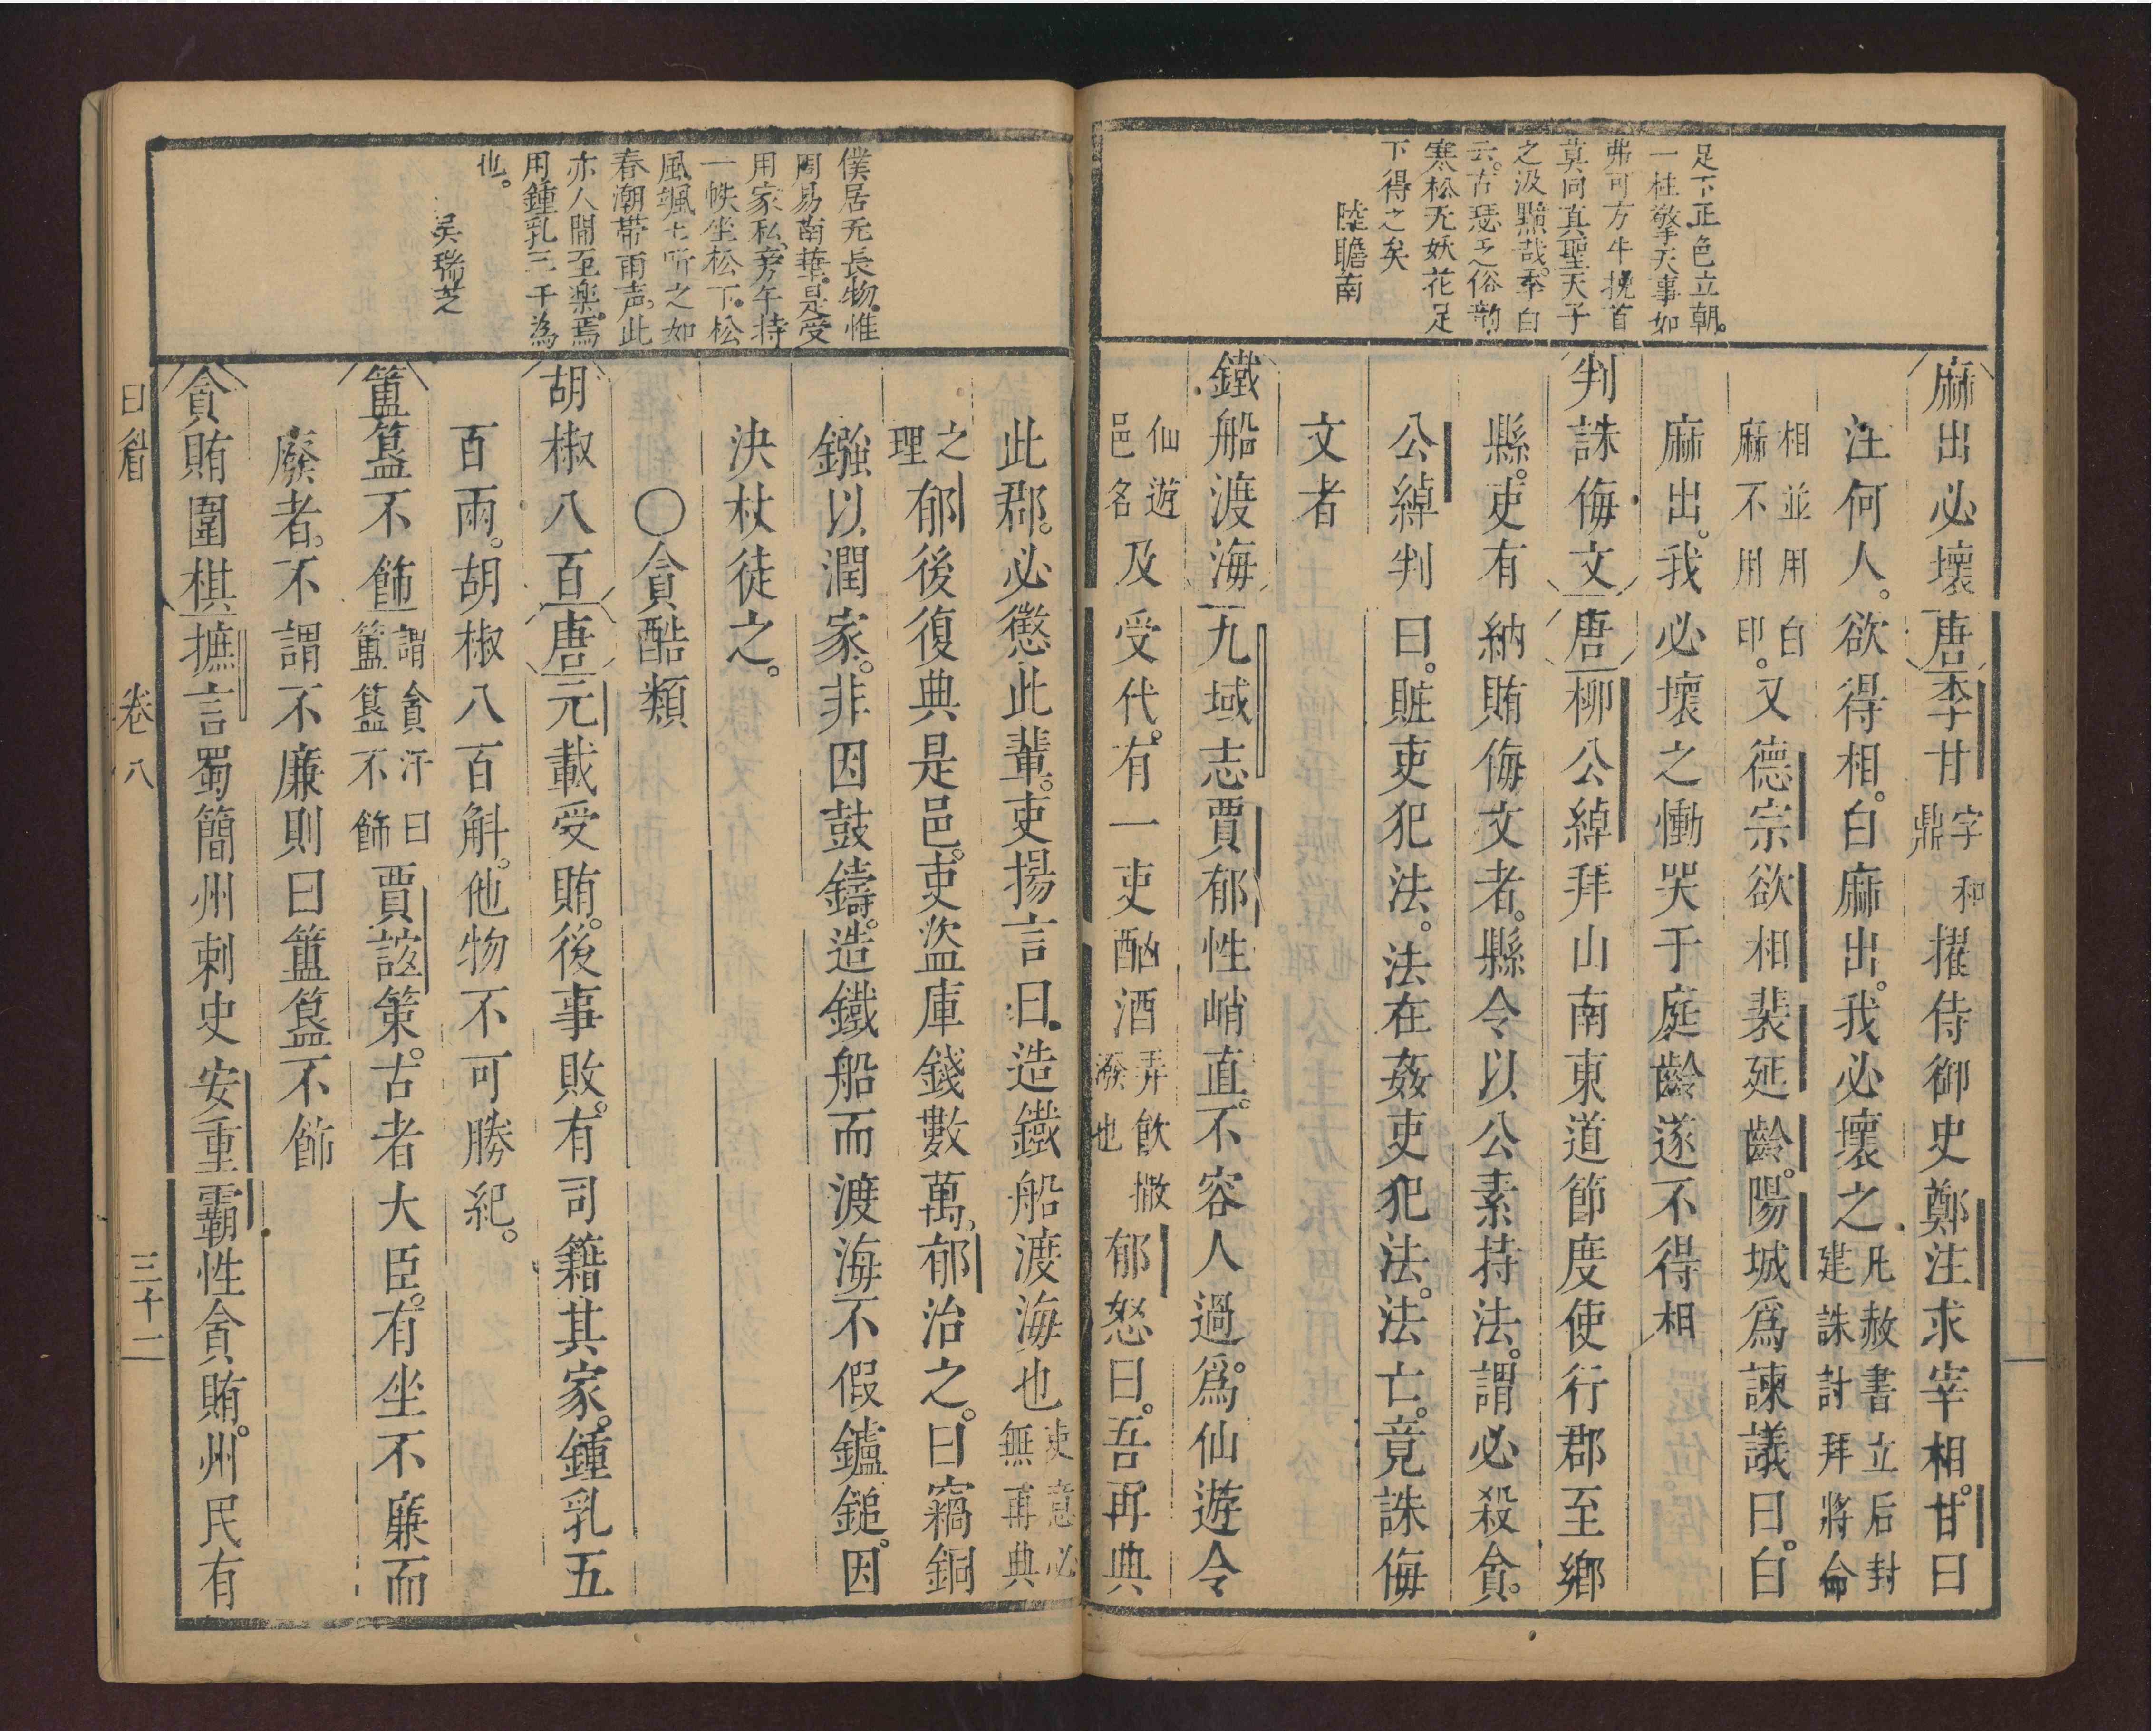 足下正色立朝。
一柱擎天事如
弗可方牛挽首
莫向真聖天子
之汲黯哉。李白
云。古瑟乏俗韵
寒松无妖花足
下得之矣
陸瞻南
麻出必壞唐李甘字和鼎擢侍御史鄭注求宰相。甘曰
注何人。欲得相。白麻出。我必壞之凡赦書立后封建誅討拜將命
相並用白麻不用印。又德宗欲相裴延齡。陽城爲諫議曰。白
麻出。我必壞之慟哭于庭齡遂不得相
判誅侮文唐柳公綽拜山南東道節度使行郡至鄉
縣。吏有納賄侮文者。縣令以公素持法。謂必殺貪。
公綽判曰。贓吏犯法。法在姦吏犯法。法亡。竟誅侮
文者
鐵船渡海九域志賈郁性峭直。不容人過。爲仙遊令
仙遊邑名及受代。有一吏酗酒弄飲撒潑也郁怒曰。吾再典
僕居无長物。惟
周易南華。是受
用家私。旁午持
一帙坐松下。松
風颯颯聽之如
春潮帶雨声。此
亦人間至楽。焉
用鍾乳三千為
也。
吴瑞芝
此郡。必懲此輩。吏揚言曰。造鐵船渡海也吏意必無再典
之理郁後復典是邑。吏盜庫錢數萬。郁治之。曰竊銅
鏹以潤家。非因鼓鑄。造鐵船而渡海不假鑪鎚。因
決杖徒之。
〇貪酷類
胡椒八百唐元載受賄。後事敗。有司籍其家。鍾乳五
百兩。胡椒八百斛。他物不可勝紀。
簠簋不飾謂貪汙曰簠簋不飾賈誼策。古者大臣。有坐不廉而
廢者。不謂不廉則曰簠簋不飾
貪賄圍棋摭言蜀簡州刺史安重霸性貪賄。州民有
日省 卷八 三十一